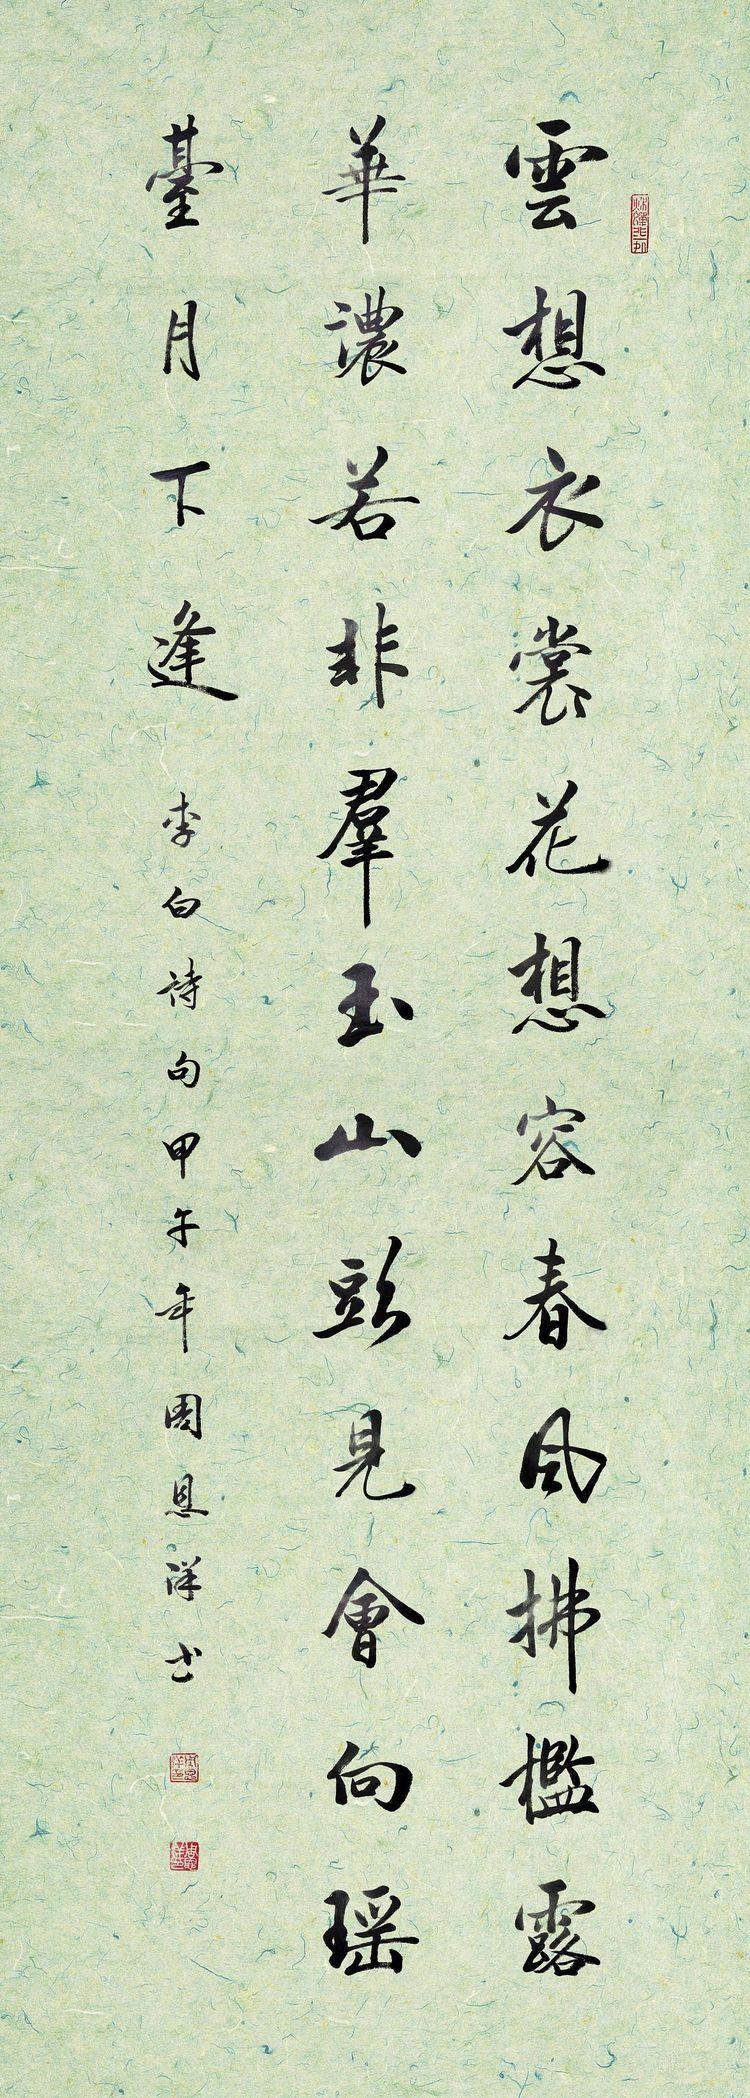 雲想衣裳花想容春風拂檻露
華濃若非羣玉山頭見會向瑶
臺月下逢 李白詩句甲午年周恩祥书